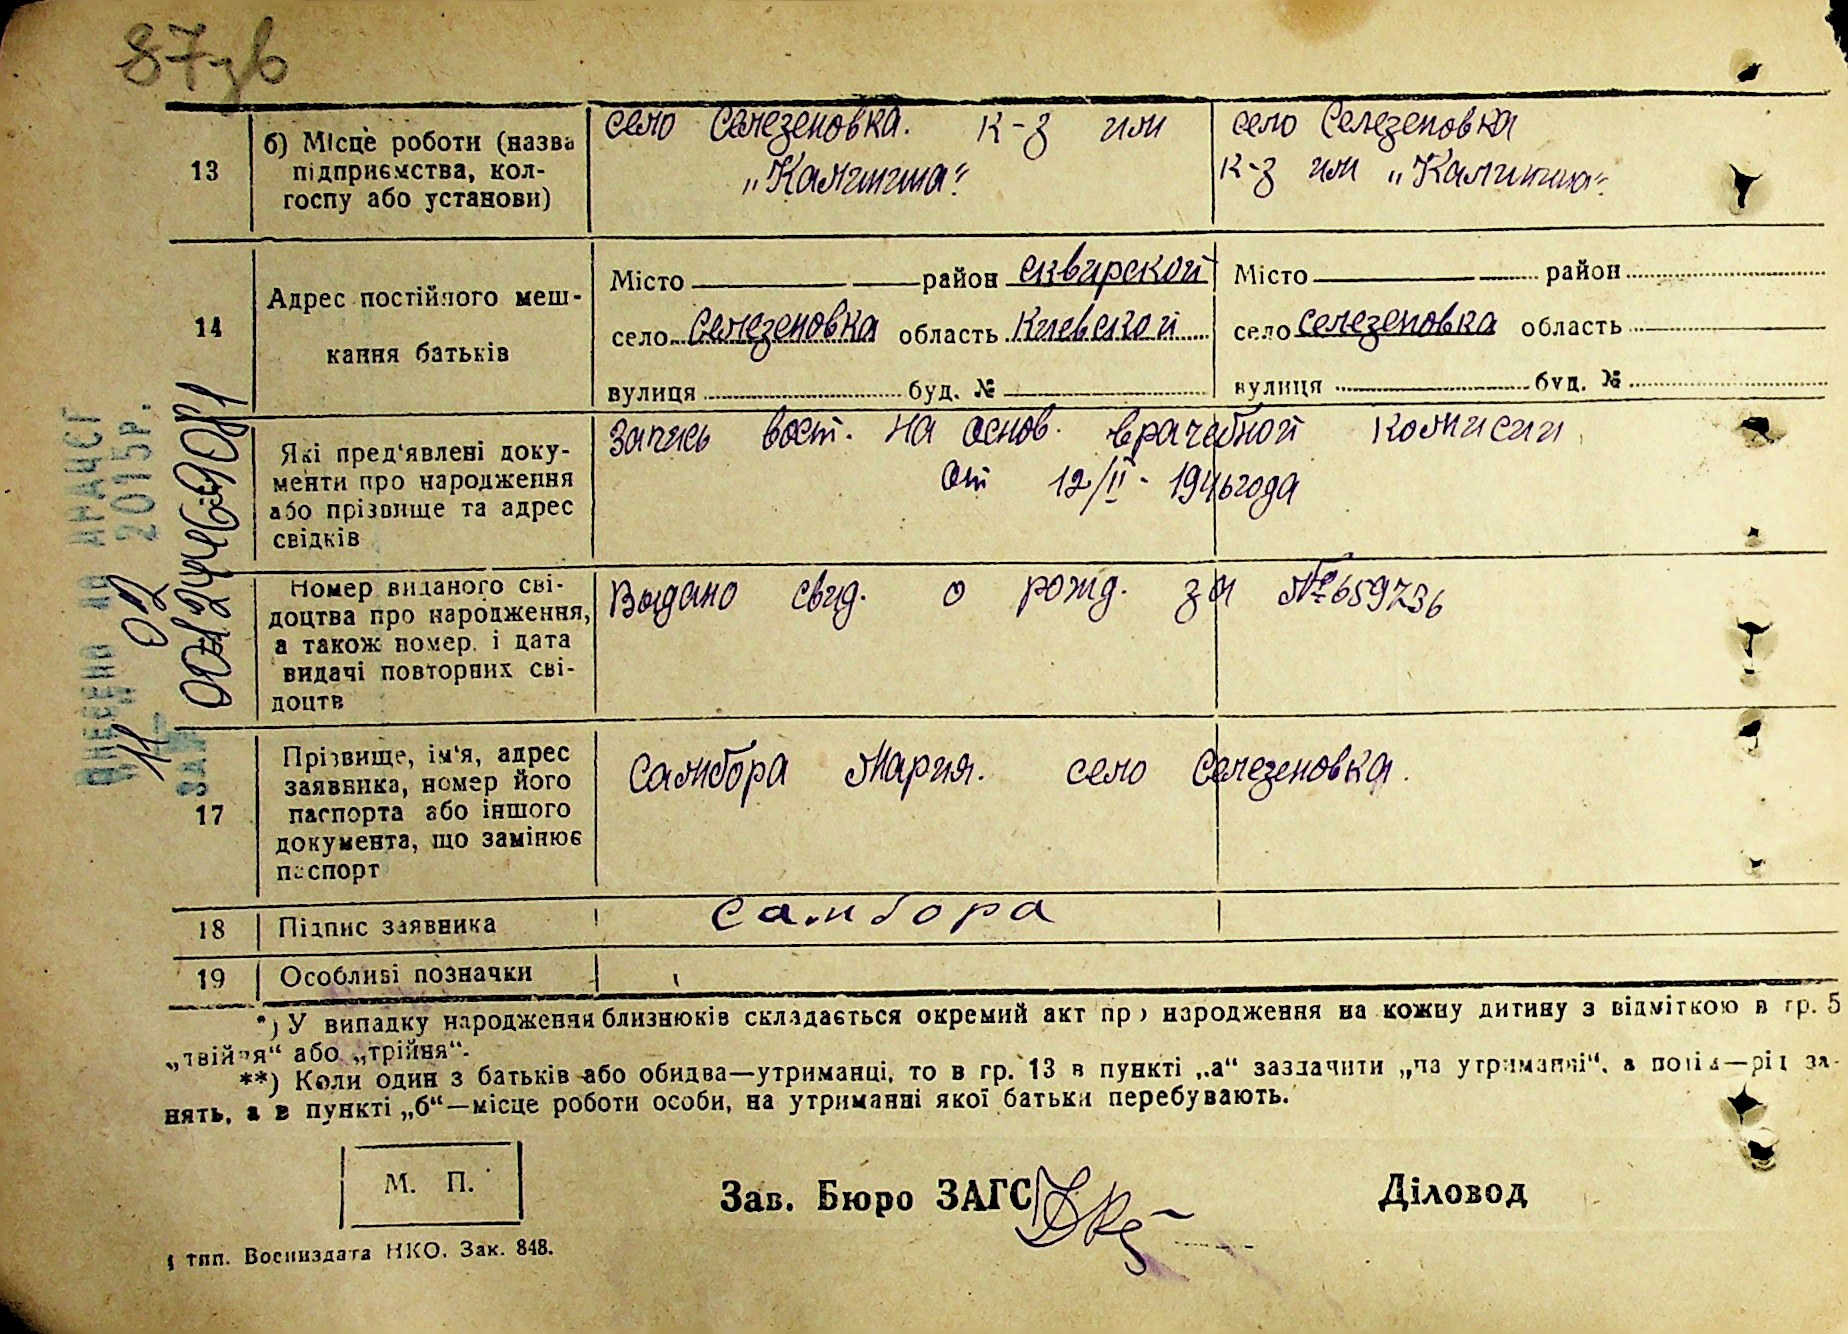 87зв
13
б) Місце роботи (назва
підприємства, кол-
госпу або установи)
село Селезеновка. к-з им
„Калинина“
село Селезеновка
к-з им „Калинина“
14
Адрес постійного меш-
кання батьків
Місто район сквирской
село Селезеновка область Киевской
вулиця буд. №
Місто район
село Селезеновка область
вулиця буд. №
Які пред'явлені доку-
менти про народження
або прізвище та адрес
свідків
Запись вост. на основ. врачебной комисии
от 12/II - 1946 года
Номер виданого сві-
доцтва про народження,
а також номер і дата
видачі повторних сві-
доцтв
Выдано свид. о рожд. за № 659736
17
Прізвище, ім'я, адрес
заявника, номер його
паспорта або іншого
документа, що замінює
паспорт
Самбора Мария. село Селезеновка.
18
Підпис заявника
Самбора
19
Особливі позначки
ВНЕСЕНО ДО ДРАЦСГ
11 02 2015р.
ЗА №
*) У випадку народження близнюків складається окремий акт про народження на кожну дитину з відміткою в гр. 5
„двійня“ або „трійня“.
**) Коли один з батьків або обидва—утриманці, то в гр. 13 в пункті „а“ зазначити „на утриманні“, а потім—рід за-
нять, а в пункті „б“—місце роботи особи, на утриманні якої батьки перебувають.
М. П.
Зав. Бюро ЗАГС
Діловод
1 тип. Воениздата НКО. Зак. 848.